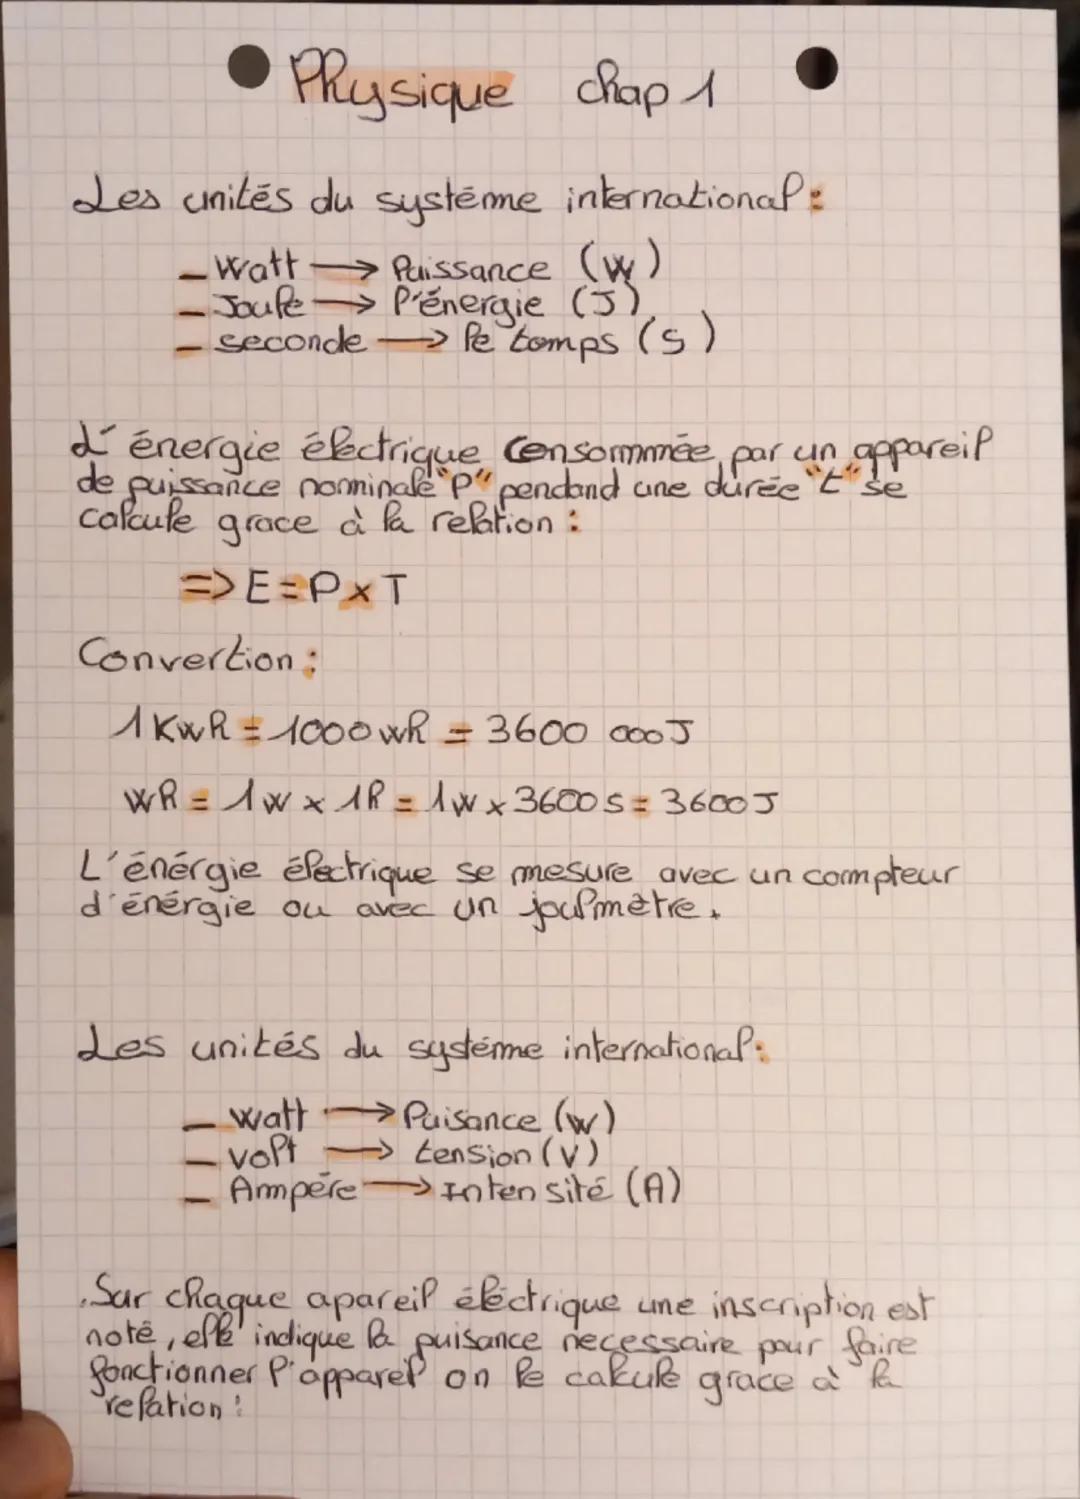 Physique chap 1
Les unités du systéme international :
- Watt → Puissance (W)
- Joule → l'énergie (J)
- seconde → le temps (s)
L'énergie électrique Consommée par un appareil
de puissance nominale "P" pendand une durée "t" se
calcule grace à la relation :
=> E = P x T
Convertion :
1 KwR = 1000 wh = 3600 000 J
wh = 1w x 1h = 1w x 3600 s = 3600 J
L'énérgie électrique se mesure avec un compteur
d'énérgie ou avec un joulmètre.
Les unités du systéme international :
- watt → Puisance (w)
- volt → tension (V)
- Ampére → Intensité (A)
.Sur chaque apareil éléctrique une inscription est
noté, elle indique la puisance necessaire pour faire
fonctionner l'apparel on le calcule grace à la
relation :